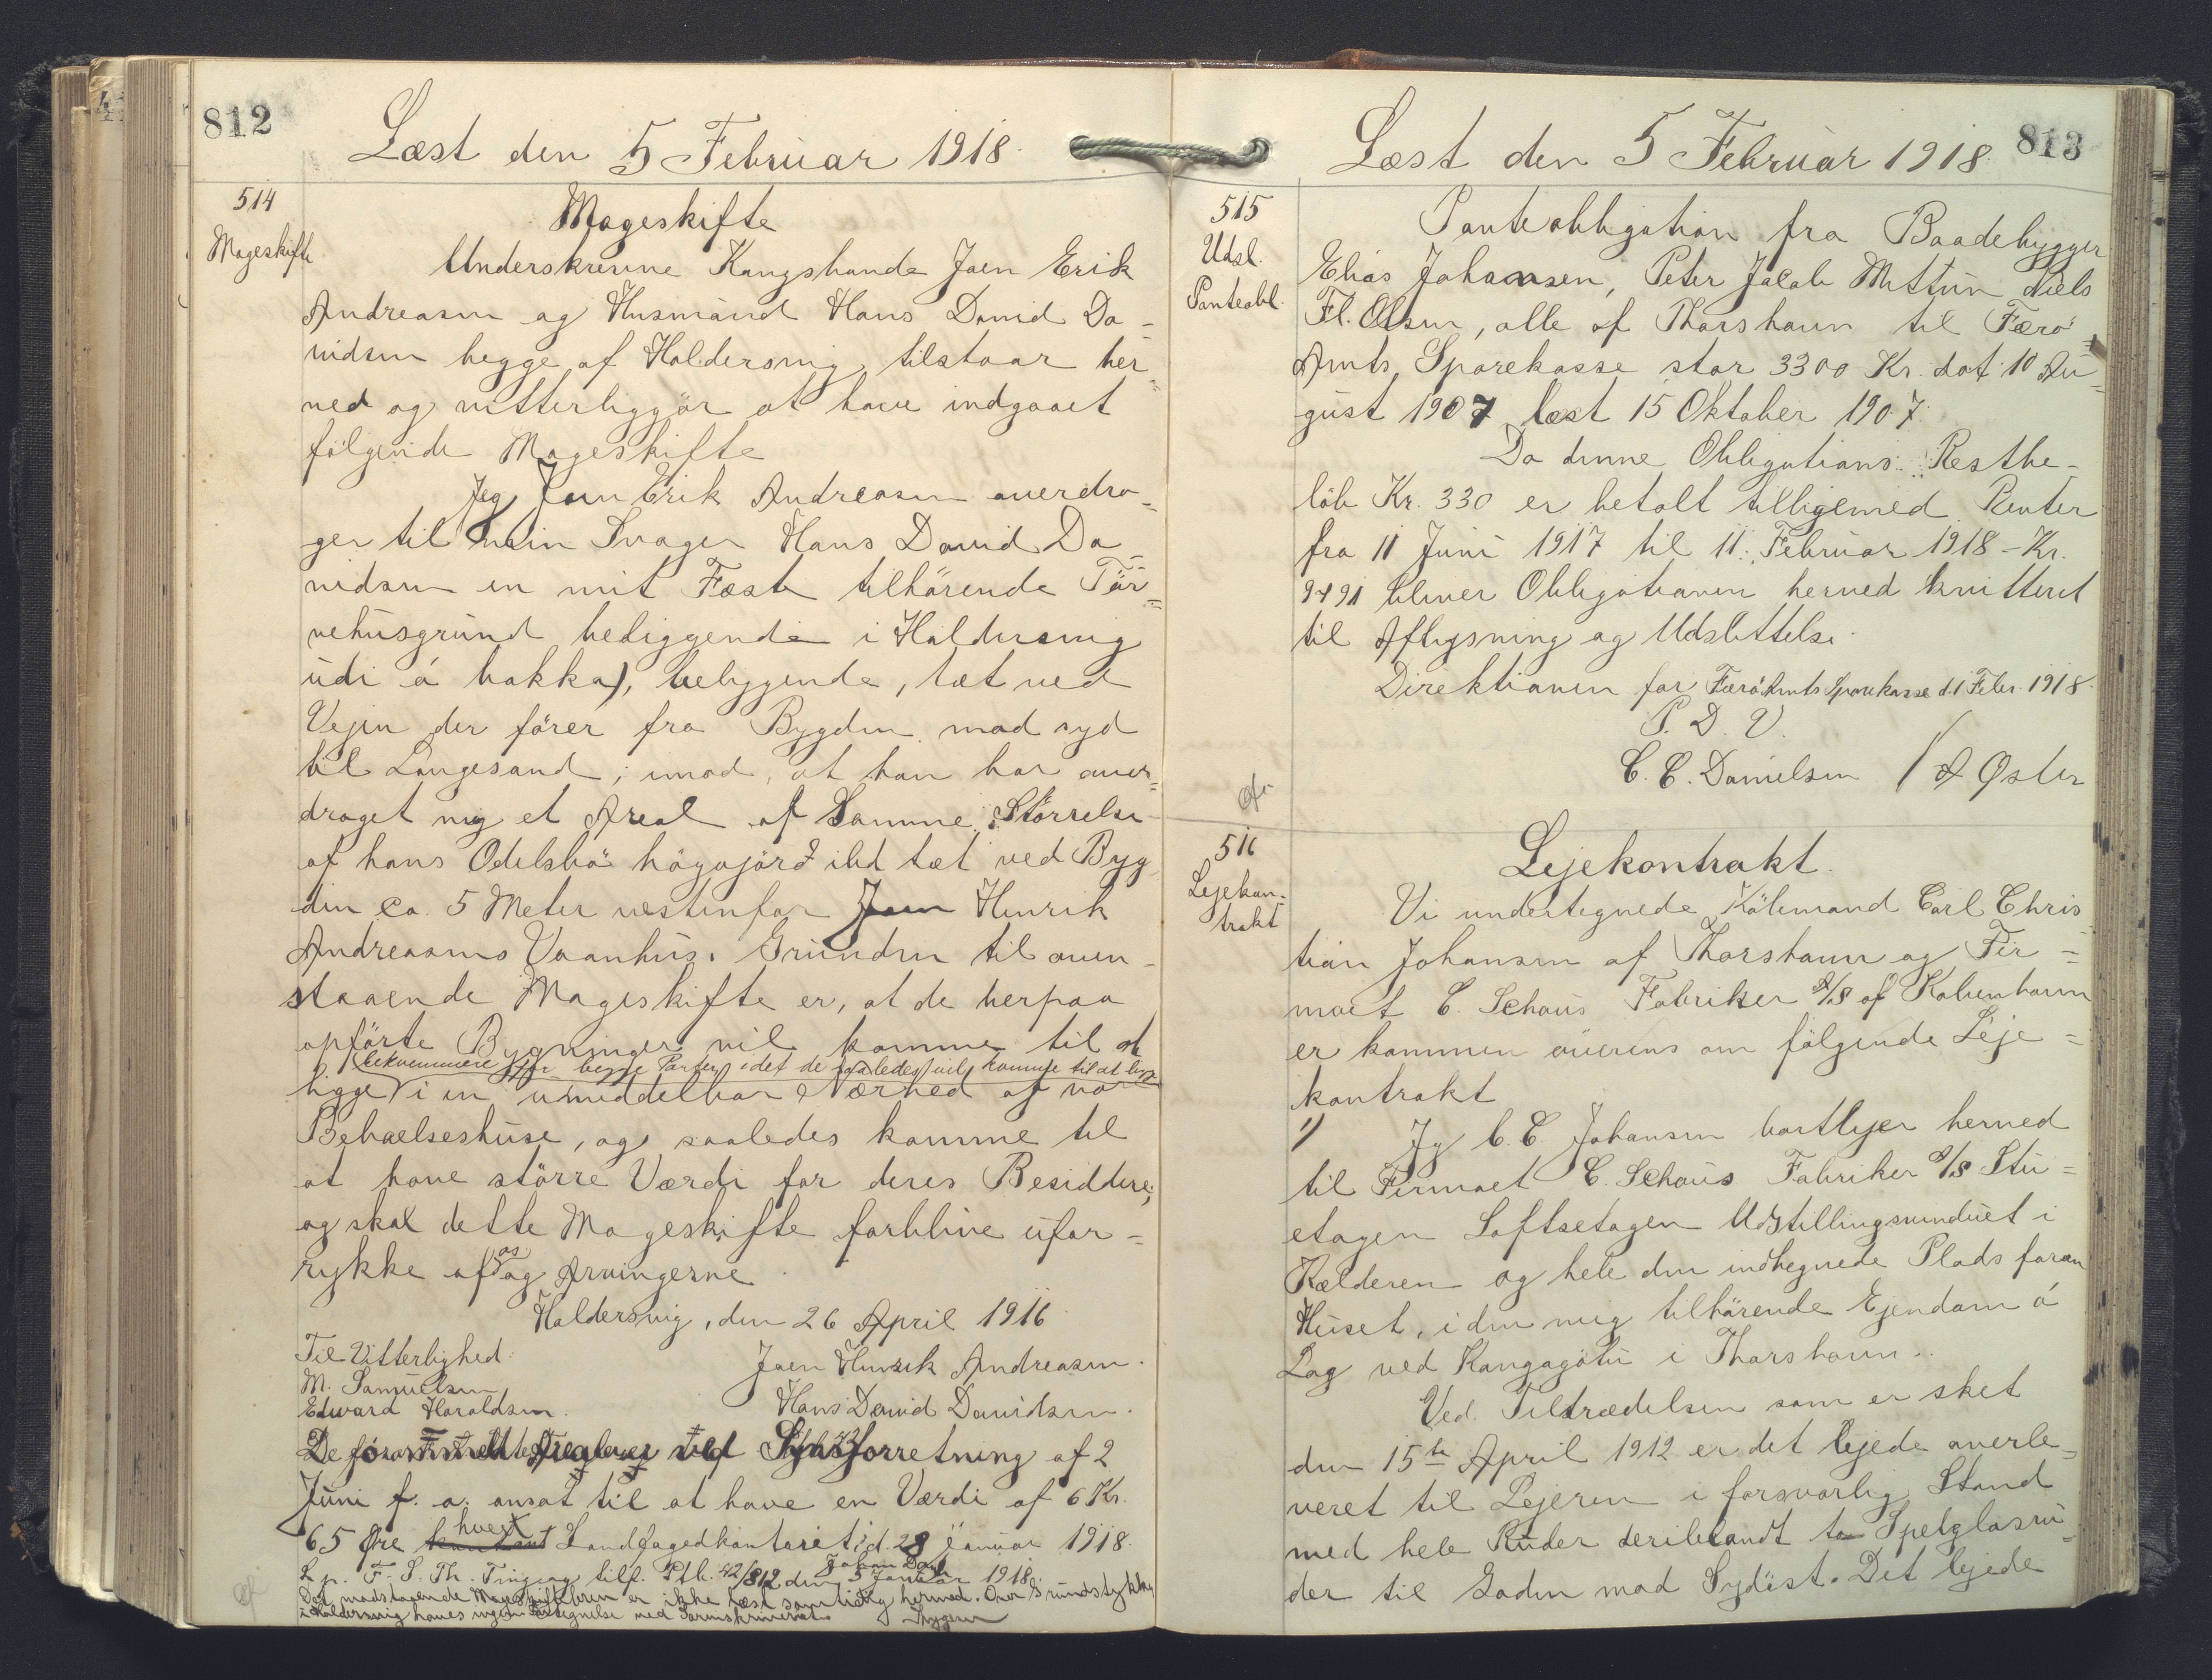 812
Læst den 5 Februar 1918.
514
Mageskifte
Mageskifte
Underskrevne Kongsbonde Joen Erik
Andreasen og Husmand Hans David Da=
vidsen begge af Haldersvig, tilstaar her=
ved og vitterliggör at have indgaaet
fölgende Mageskifte
Jeg Joen Erik Andreasen overdra=
ger til min Svager Hans David Da=
vidsen en mit Fæste tilhörende Tör=
vehusgrund beliggende i Haldersvig
udi á bakka), beliggende, tæt ved
Vejen der förer fra Bygden mod syd
til Langesand; imod, at han har over=
draget mig et Areal af Samme Störrelse
af hans Odelsbö högajørd ibd tæt ved Byg
den ca. 5 Meter vestenfor Joen Henrik
Andreasens Vaanhus. Grunden til oven=
staaende Mageskifte er, at de herpaa
opförte Bygninger vil komme til at
bekvemmere for begge Parter idet de saaledes vil komme til at ligge
ligge i en umiddelbar Nærhed af vor
Behoelseshuse, og saaledes komme til
at have större Værdi for deres Besiddere;
og skal dette Mageskifte forblive ufor=
rykke af os og Arvingerne
Haldersvig, den 26 April 1916
Til Vitterlighed:
Joen Henrik Andreasen.
M. Samuelsen
Edward Haraldsen.
Hans David Davidsen.
De Synsforretning af 2
Juni f. a. ansat til at have en Værdi af 6 Kr.
65 Øre hvert Landfogedkontoret, d. 28 Januar 1918.
L p. F. S. Th. Tinglag tilf. Ptb. 42/812 den 5 Januar 1918.
Det modstaaende Mageskiftebrev er ikke læst samtidig hermed. Over Grundstykke
i Haldersvig haves ingen Fortegnelse ved Sorenskriveriet.
813
Læst den 5 Februar 1918.
515
Udsl.
Panteobl.
Panteobligation fra Baadebygger
Elias Johansen, Peter Jacob Mittun Niels
Fl. Olsen, alle af Thorshavn til Færö
Amts Sparekasse stor 3300 Kr. dat. 10 Au=
gust 1907 læst 15 Oktober 1907.
Da denne Obligations Restbe=
löb Kr. 330 er betalt tilligemed Renter
fra 11 Juni 1917 til 11. Februar 1918 - Kr.
9,91 bliver Obligationen herved kvitteret
til Aflysning og Udslettelse.
Direktionen for Færö Amts Sparekasse d. 1 Febr. 1918.
P. D. V.
C. C. Danielsen / A Øster
516
Lejekon=
trakt
Lejekontrakt.
Vi undertegnede Köbmand Carl Chris
tian Johansen af Thorshavn og Fir=
maet C. Schous Fabriker A/S af Kobenhavn
er kommen överens om fölgende Leje=
kontrakt
1) Jeg C. C. Johansen bortlejer herved
til Firmaet C. Schous Fabriker A/S Stu=
etagen Loftsetagen Udstillingsvinduet i
Kælderen og hele den indhegnede Plads foran
Huset, i den mig tilhörende Ejendom á
Lag ved Kongagötu i Thorshavn.
Ved Tiltrædelsen som er sket
den 15de April 1912 er det lejede overle=
veret til Lejeren i forsvarlig Stand
med hele Ruder deriblandt to Spejlglasru=
der til Gaden mod Sydöst. Det lejede